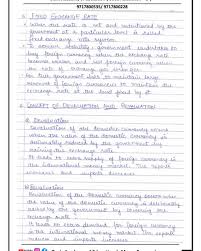 9717800535/ 9717800228
FIXED EXCHANGE RATE
When the rate is set and maintained by the
government at a particular level is called
fixed exchange rate system.
To ensure stability government undertakes to
buy foreign currency when the exchange rate
becomes weaker and sell foreign currency when
the rate of exchange gets stronger.
For this government has to maintain large
reserves of foreign currencies to maintain the
exchange rate at the level fixed by it.
CONCEPT OF DEVALUATION AND REVALUATION
Devaluation
Devaluation of the domestic currency occurs
when the value of the domestic currency is
deliberately reduced by the government by
the exchange rate.
It leads to supply of foreign currency in
the international money market. The
and imports decrease.
Revaluation
Revaluation of the domestic currency occurs when
the value of the domestic currency is deliberately
by the government by
exchange rate.
It leads to excess demand for foreign currency
in the international money market. The
reduce and imports increase.